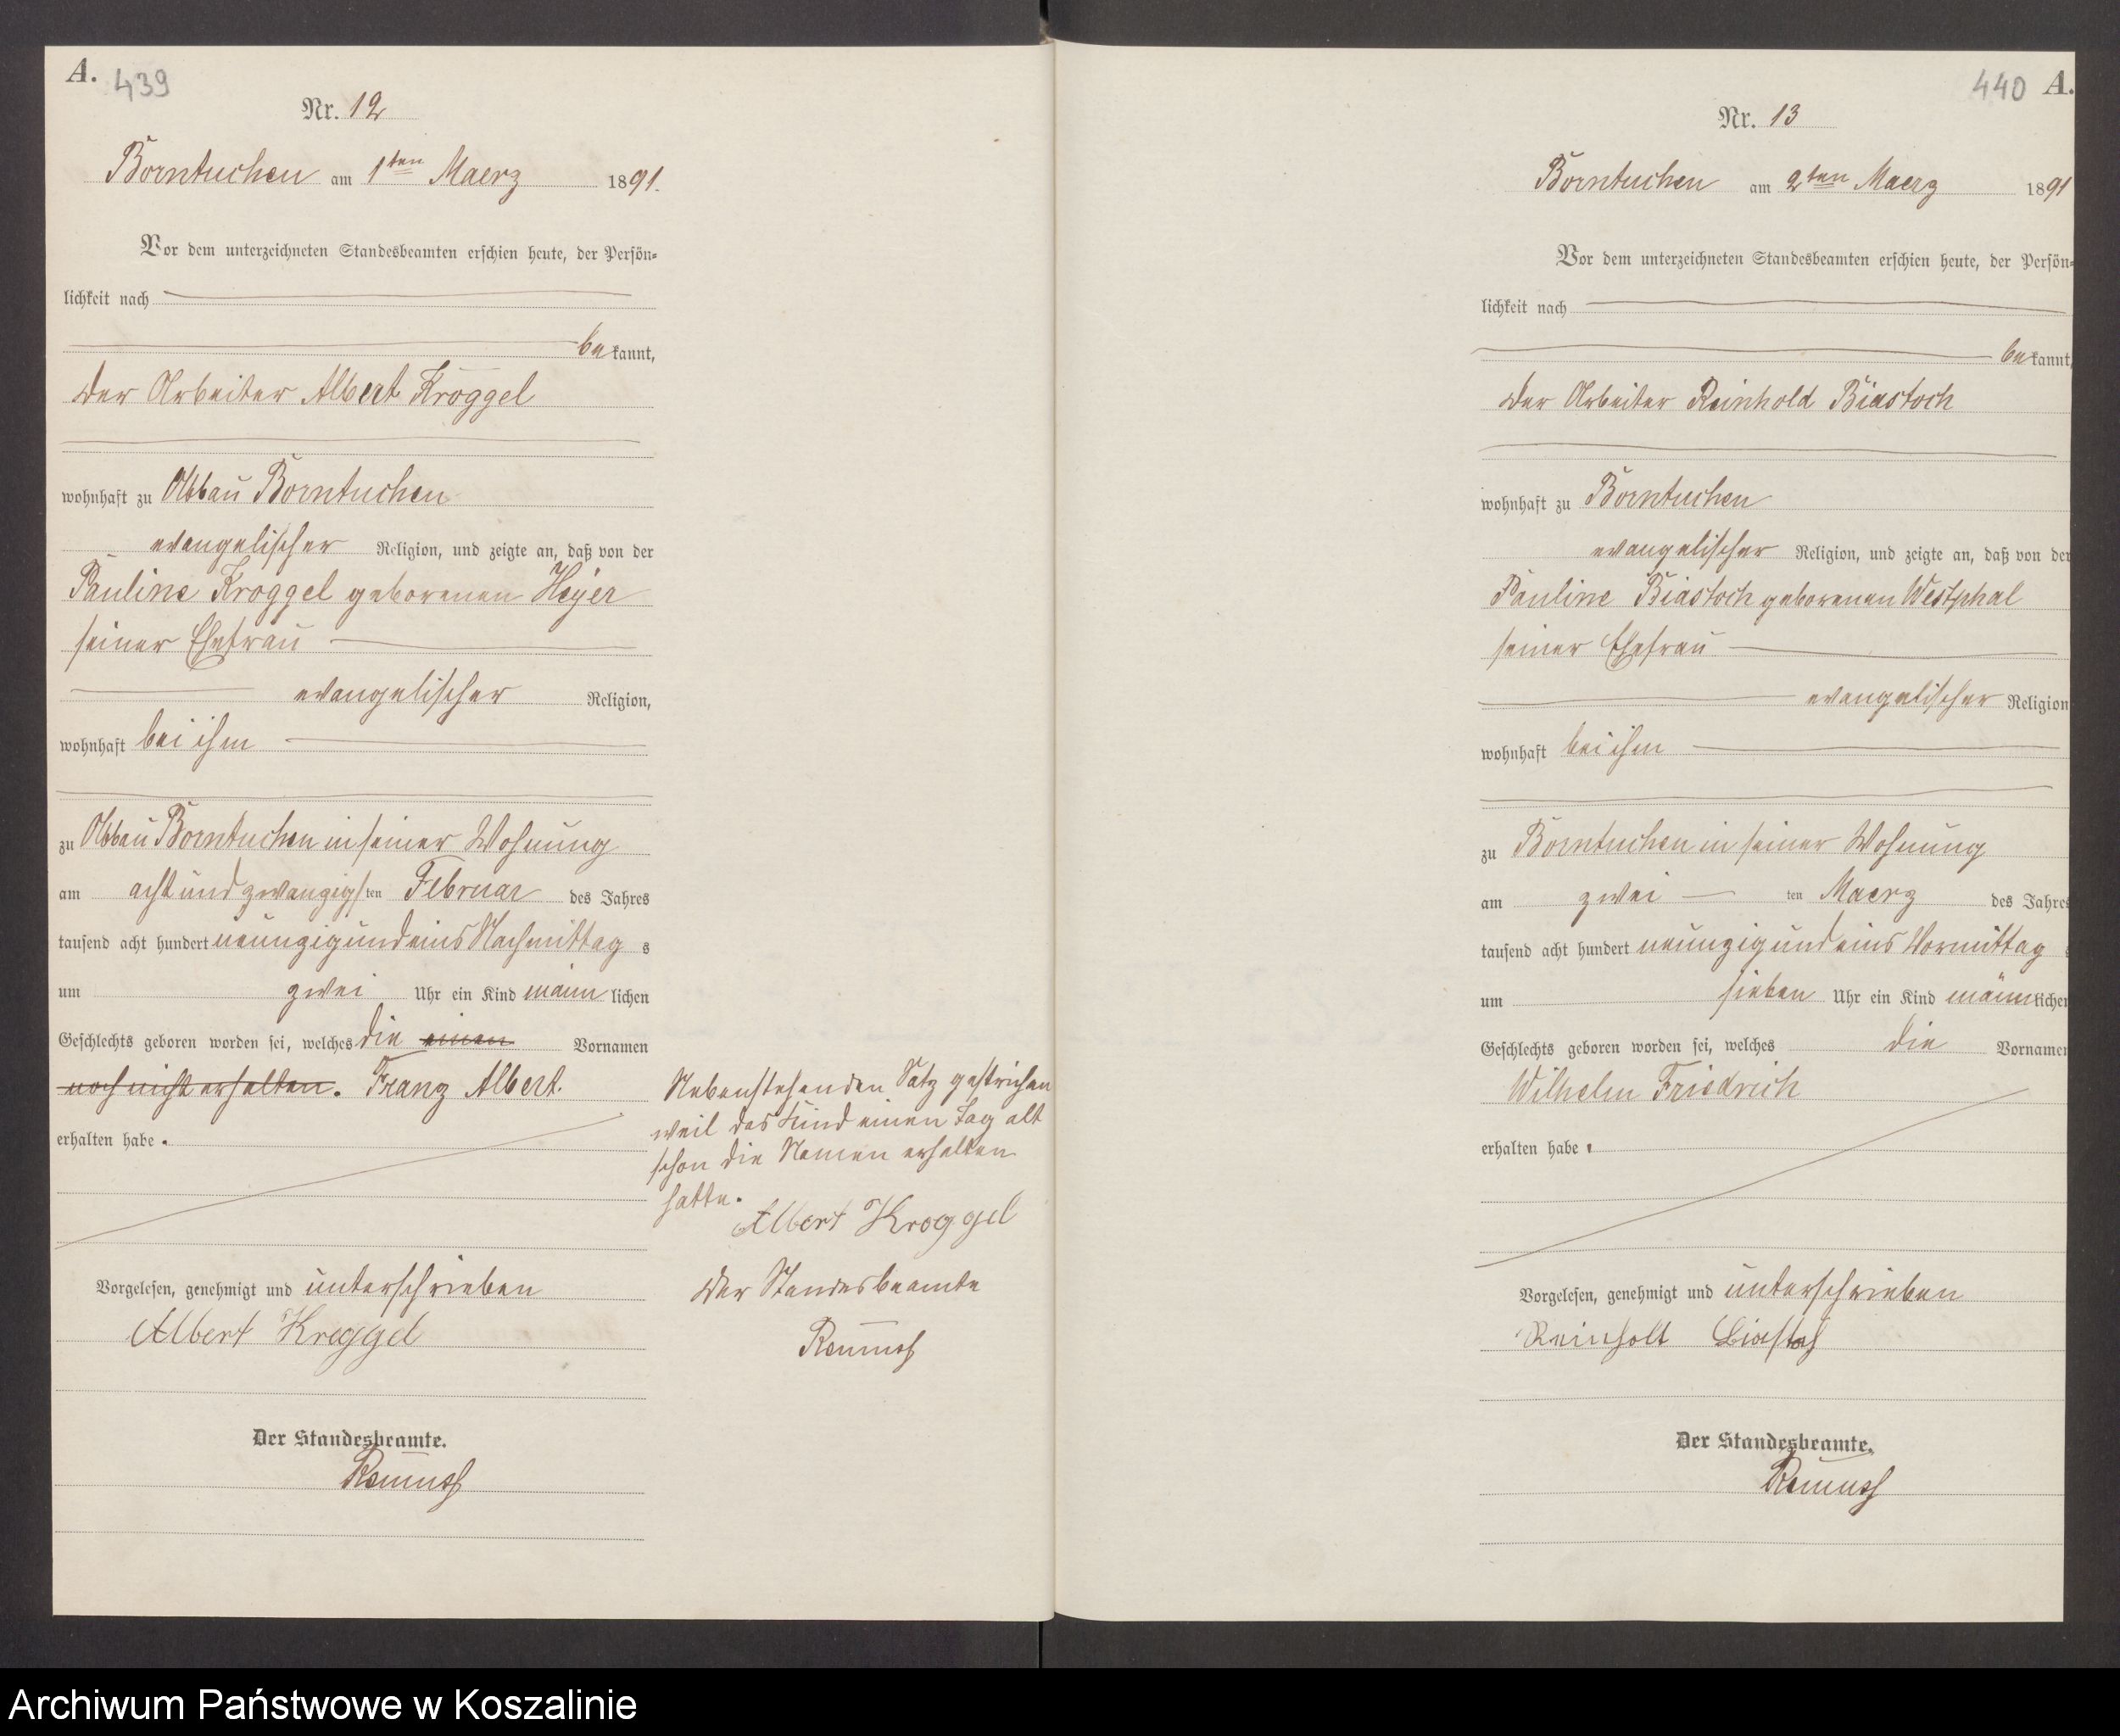 A. 439
Nr. 12
Borntuchen am 1ten Maerz 1891.
Vor dem unterzeichneten Standesbeamten erschien heute, der Persön-
lichkeit nach
bekannt,
der Arbeiter Albert Kroggel
wohnhaft zu Abbau Borntuchen
evangelischer Religion, und zeigte an, daß von der
Pauline Kroggel geborenen Heyer
seiner Ehefrau
evangelischer Religion,
wohnhaft bei ihm
zu Abbau Borntuchen in seiner Wohnung
am acht und zwanzigsten Februar des Jahres
tausend acht hundert neunzig und eins Nachmittags
um zwei Uhr ein Kind männlichen
Geschlechts geboren worden sei, welches die einen Vornamen
noch nicht erhalten. Franz Albert.
erhalten habe.
Vorgelesen, genehmigt und unterschrieben
Albert Kroggel
Der Standesbeamte.
Nebenstehenden Satz gestrichen
weil das Kind einen Tag alt
schon die Namen erhalten
hatte.
Albert Kroggel
Der Standesbeamte
440 A.
Nr. 13
Borntuchen am 2ten Maerz 1891
Vor dem unterzeichneten Standesbeamten erschien heute, der Persön-
lichkeit nach
bekannt,
der Arbeiter Reinhold Biastoch
wohnhaft zu Borntuchen
evangelischer Religion, und zeigte an, daß von der
Pauline Biastoch geborenen Westphal
seiner Ehefrau
evangelischer Religion
wohnhaft bei ihm
zu Borntuchen in seiner Wohnung
am zwei ten Maerz des Jahres
tausend acht hundert neunzig und eins Vormittag
um sieben Uhr ein Kind männlichen
Geschlechts geboren worden sei, welches die Vornamen
Wilhelm Friedrich
erhalten habe.
Vorgelesen, genehmigt und unterschrieben
Reinholt Biastoch
Der Standesbeamte.
Archiwum Państwowe w Koszalinie